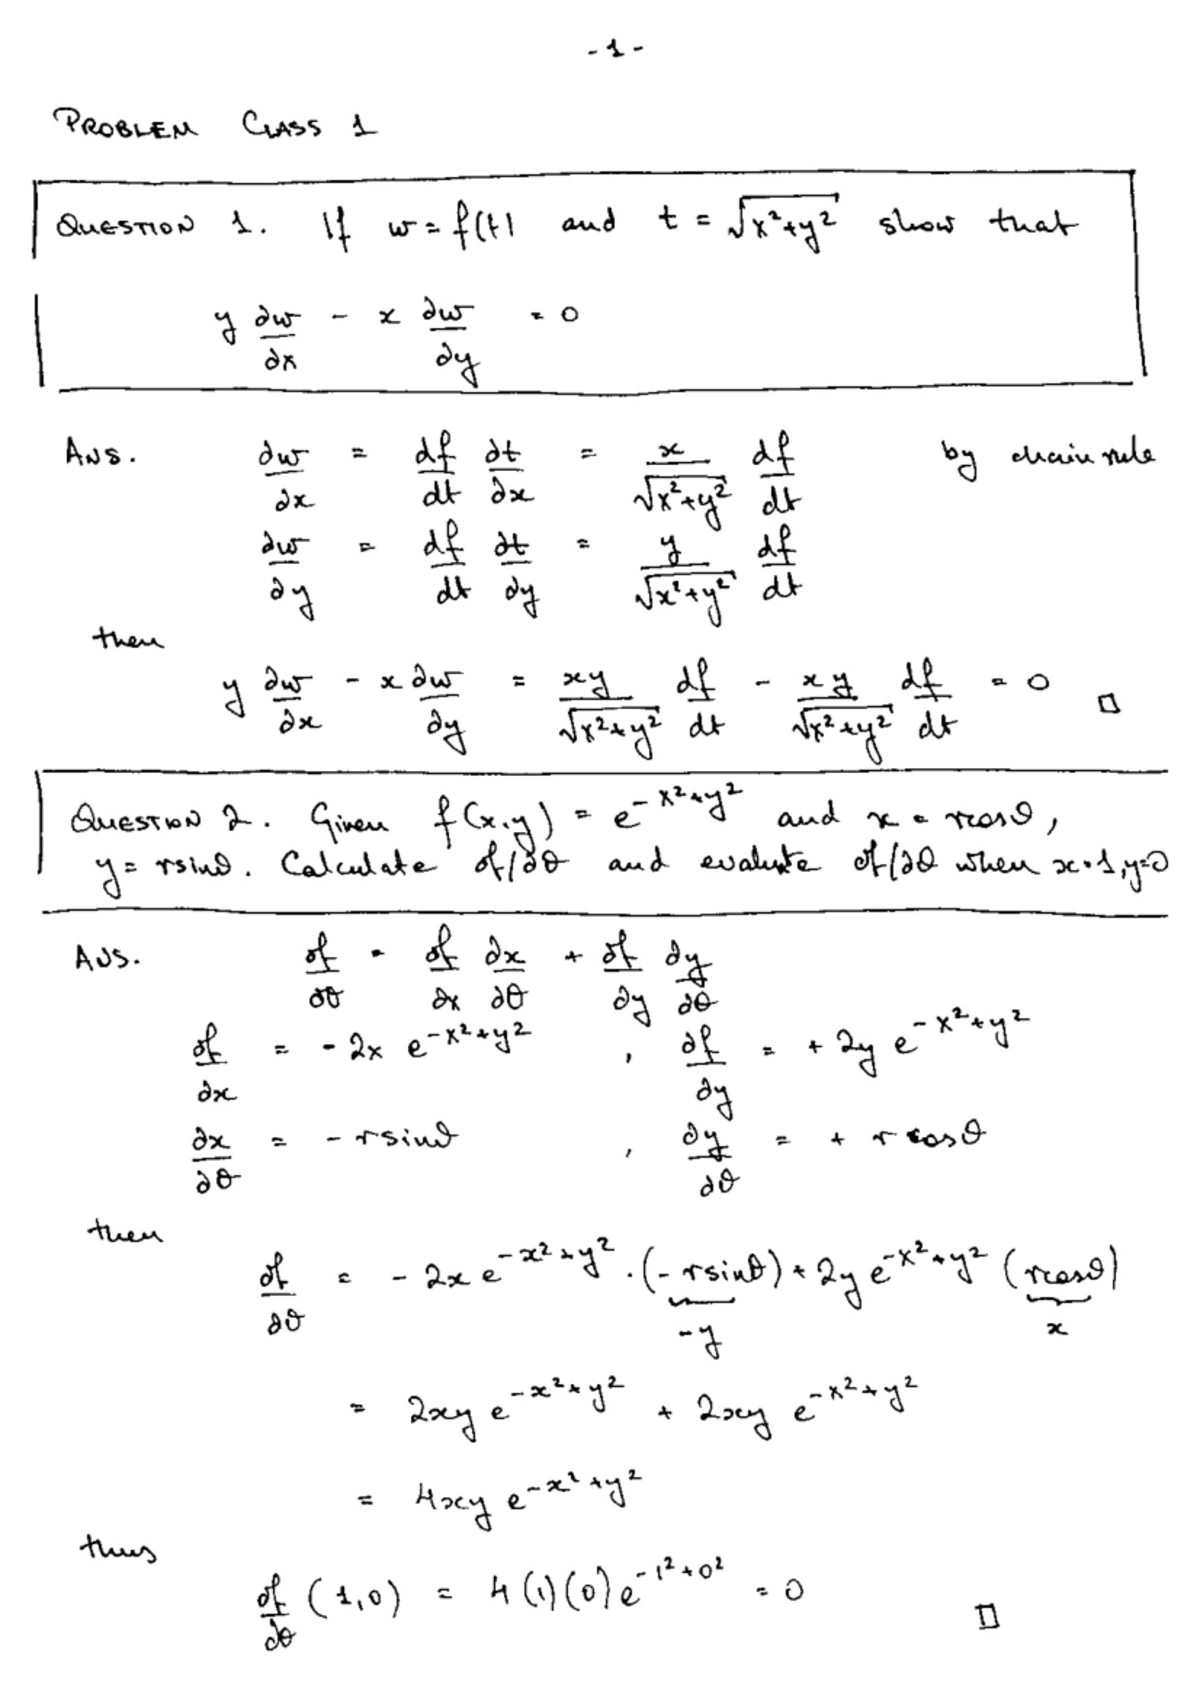 - 1 -
PROBLEM CLASS 1
QUESTION 1. If w = f(t) and t = √(x²+y²) show that
y ∂w/∂x - x ∂w/∂y = 0
ANS. ∂w/∂x = df/dt ∂t/∂x = x/√(x²+y²) df/dt by chain rule
∂w/∂y = df/dt ∂t/∂y = y/√(x²+y²) df/dt
then
y ∂w/∂x - x ∂w/∂y = xy/√(x²+y²) df/dt - xy/√(x²+y²) df/dt = 0 □
QUESTION 2. Given f(x,y) = e^(-x²+y²) and x = rcosθ,
y = rsinθ. Calculate ∂f/∂θ and evaluate ∂f/∂θ when x=1, y=0
ANS. ∂f/∂θ = ∂f/∂x ∂x/∂θ + ∂f/∂y ∂y/∂θ
∂f/∂x = - 2x e^(-x²+y²) , ∂f/∂y = + 2y e^(-x²+y²)
∂x/∂θ = - rsinθ , ∂y/∂θ = + r cosθ
then
∂f/∂θ = - 2x e^(-x²+y²) . (- rsinθ) + 2y e^(-x²+y²) (rcosθ)
-y x
= 2xy e^(-x²+y²) + 2xy e^(-x²+y²)
= 4xy e^(-x²+y²)
thus
∂f/∂θ (1,0) = 4 (1) (0) e^(-1²+0²) = 0 □